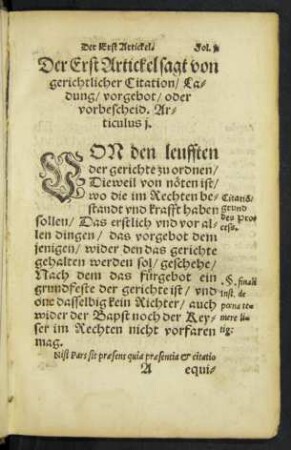 Der Erst Artickel.
Fol. j.
Der Erst Artickel sagt von
gerichtlicher Citation/ La-
dung/ vorgebot/ oder
vorbescheid. Ar-
ticulus j.
VON den leufften
der gerichte zu ordnen/
Dieweil von nöten ist/
wo die im Rechten be-
standt vnd krafft haben
sollen/ Das erstlich vnd vor al-
len dingen/ das vorgebot dem
jenigen/ wider den das gerichte
gehalten werden sol/ geschehe/
Nach dem das fürgebot ein
grundfeste der gerichte ist/ vnd
one dasselbig kein Richter/ auch
wider der Bapst noch der Key-
ser im Rechten nicht vorfaren
mag.
Citatiõ
grund
des Pro-
cessus.
§. finali
inst. de
poena te-
mere li-
tig:
Nisi Pars sit praesens quia praesentia & citatio
A equi-